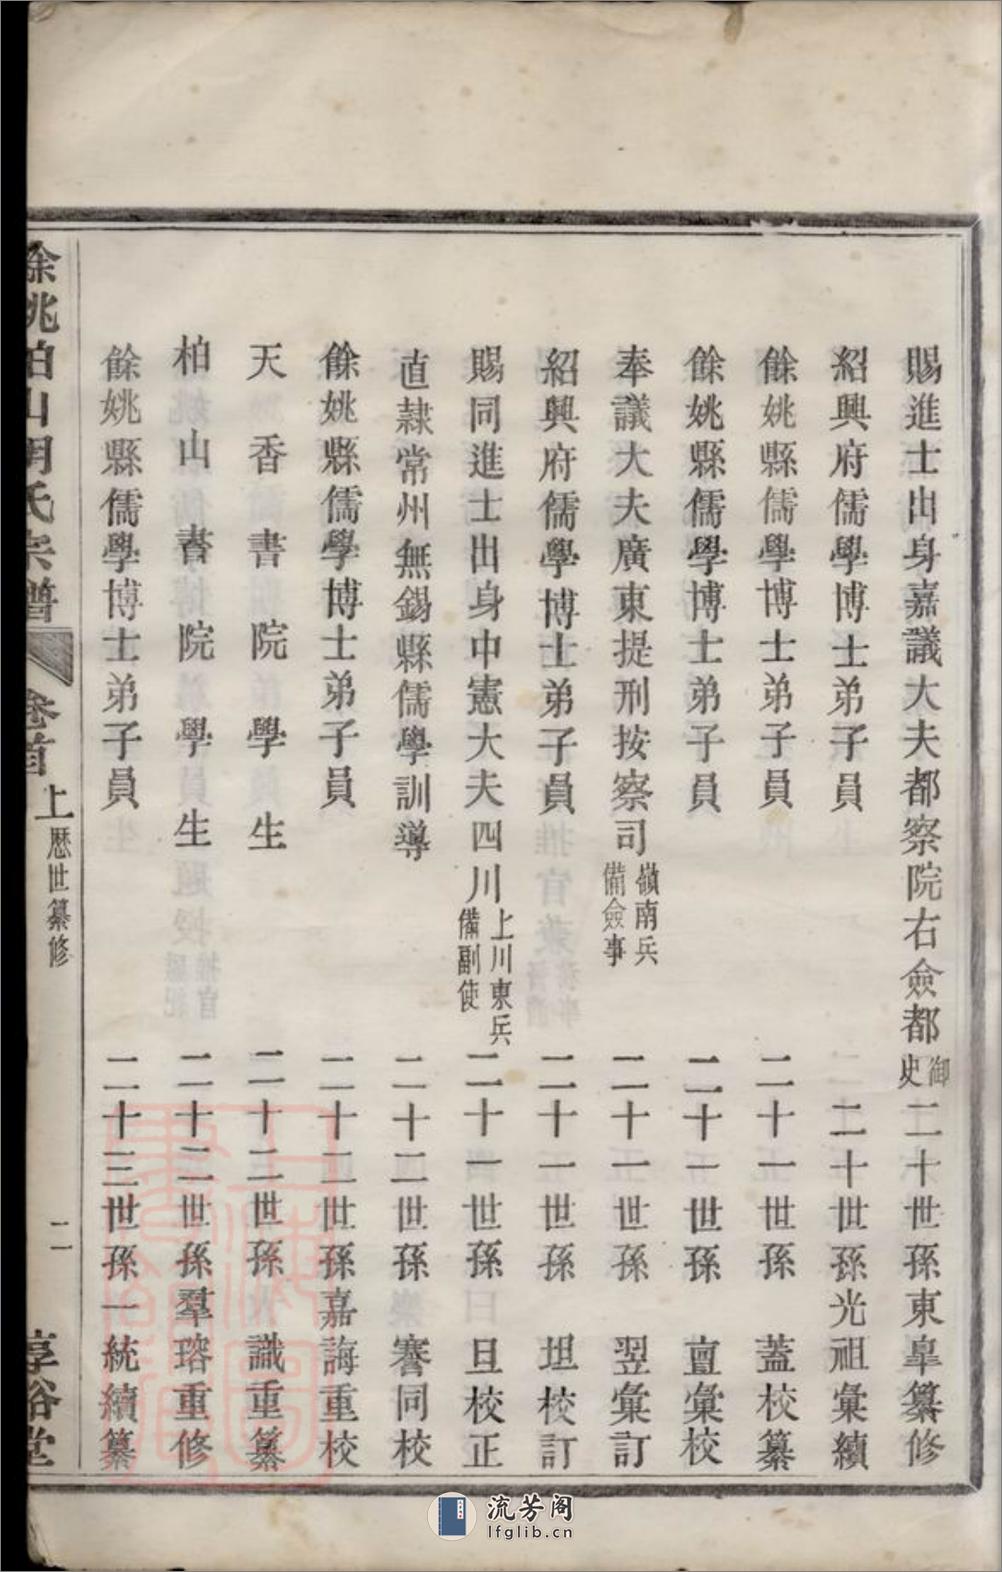 賜進士出身嘉議大夫都察院右僉都御史二十世孫東臯纂修
紹興府儒學博士弟子員二十世孫光祖彙續
餘姚縣儒學博士弟子員二十一世孫蓋校纂
餘姚縣儒學博士弟子員二十一世孫亶彙校
奉議大夫廣東提刑按察司嶺南兵備僉事二十一世孫翌彙訂
紹興府儒學博士弟子員二十一世孫坦校訂
賜同進士出身中憲大夫四川上川東兵備副使二十一世孫旦校正
直隸常州無錫縣儒學訓導二十二世孫謇同校
餘姚縣儒學博士弟子員二十二世孫嘉誨重校
天香書院學生二十二世孫識重纂
柏山書院學生二十二世孫羣瑢重修
餘姚縣儒學博士弟子員二十三世孫一統續纂
餘姚柏山胡氏宗譜 卷首上 歷世纂修 二 惇裕堂
流芳阁
lfglib.cn